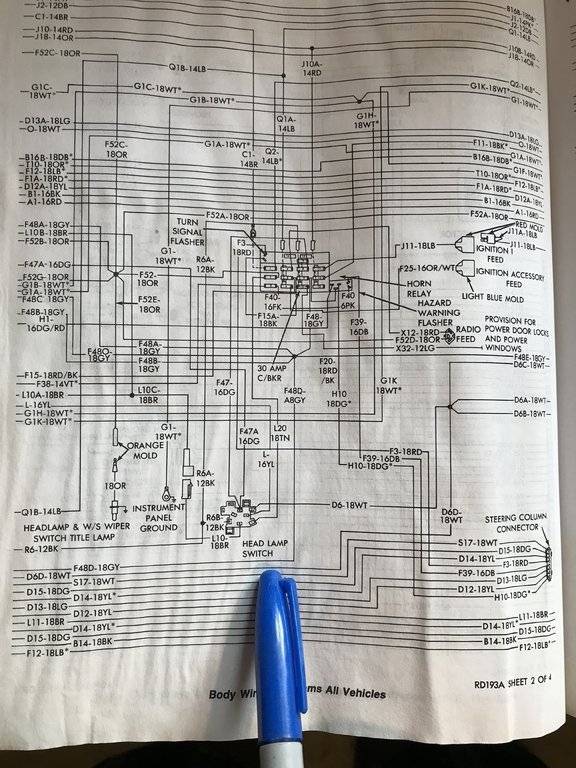 J2-12DB
C1-14BR
J10-14RD
J18-14OR
F52C-18OR
Q1B-14LB
J10A-
14RD
B16B-18DB*
J2-12DB
Q1-14LB
J10B-14RD
J18-14OR
G1C-
18WT*
G1C-18WT*
G1B-18WT*
Q1A-
14LB
G1H-
18WT*
G1K-18WT*
Q2-14LB*
G1-18WT*
D13A-18LG
O-18WT
F52C-
18OR
G1A-18WT*
C1-
14BR
Q2-
14LB*
D13A-18LG
O-18WT
F11-18BK*
G1A-18WT*
B16B-18DB*
T10-18OR*
F12-18LB*
F1A-18RD*
D12A-18YL
B1-16BK
A1-16RD
B16B-18DB*
G1F-18WT*
T10-18OR*
F12-18LB*
F1A-18RD*
D12A-18YL
B1-16BK
A1-16RD
F52A-18OR
F52A-18OR
F48A-18GY
L10B-18BR
F52B-18OR
TURN
SIGNAL
FLASHER
F3-
18RD
RED MOLD
J11A-18LB
J11-18LB
J11-18LB
IGNITION 1
FEED
G1-
18WT*
R6A-
12BK
F47A-16DG
F52G-18OR
G1B-18WT*
G1A-18WT*
F48C 18GY
F52-
18OR
F25-16OR/WT
IGNITION ACCESSORY
FEED
LIGHT BLUE MOLD
HORN
RELAY
F48B-18GY
H1-
16DG/RD
F52E-
18OR
F40-
16PK
F15A-
18BK
F48-
18GY
F40
6PK
HAZARD
WARNING
FLASHER
F39-
16DB
X12-18RD
F52D-18OR
X32-12LG
RADIO
FEED
PROVISION FOR
POWER DOOR LOCKS
AND POWER
WINDOWS
F48A-
18GY
F48B-
18GY
F48E-18GY
D6C-18WT
F15-18RD/BK
F38-14VT*
30 AMP
C/BKR
F20-
18RD
/BK
L10A-18BR
L-16YL
G1H-18WT*
G1K-18WT*
L10C-
18BR
F47-
16DG
F48D-
A8GY
H10
18DG*
G1K
18WT*
D6A-18WT
D6B-18WT
G1-
18WT*
F47A
16DG
L20
18TN
L-
16YL
ORANGE
MOLD
18OR
R6A-
12BK
F3-18RD
F39-16DB
H10-18DG*
Q1B-14LB
INSTRUMENT
PANEL
GROUND
R6B-
12BK
L10-
18BR
D6-18WT
D6D-
18WT
STEERING COLUMN
CONNECTOR
HEADLAMP & W/S WIPER
SWITCH TITLE LAMP
HEAD LAMP
SWITCH
R6-12BK
S17-18WT
D15-18DG
D14-18YL
F3-18RD
F39-16DB
D13-18LG
D12-18YL
H10-18DG*
F48D-18GY
D6D-18WT
S17-18WT
D15-18DG
D14-18YL*
D13-18LG
D12-18YL
L11-18BR
D14-18YL*
D15-18DG
B14-18BK
F12-18LB*
L11-18BR
D14-18YL*
D15-18DG
B14-18BK
F12-18LB*
Body Wir ms All Vehicles
RD193A SHEET 2 OF 4